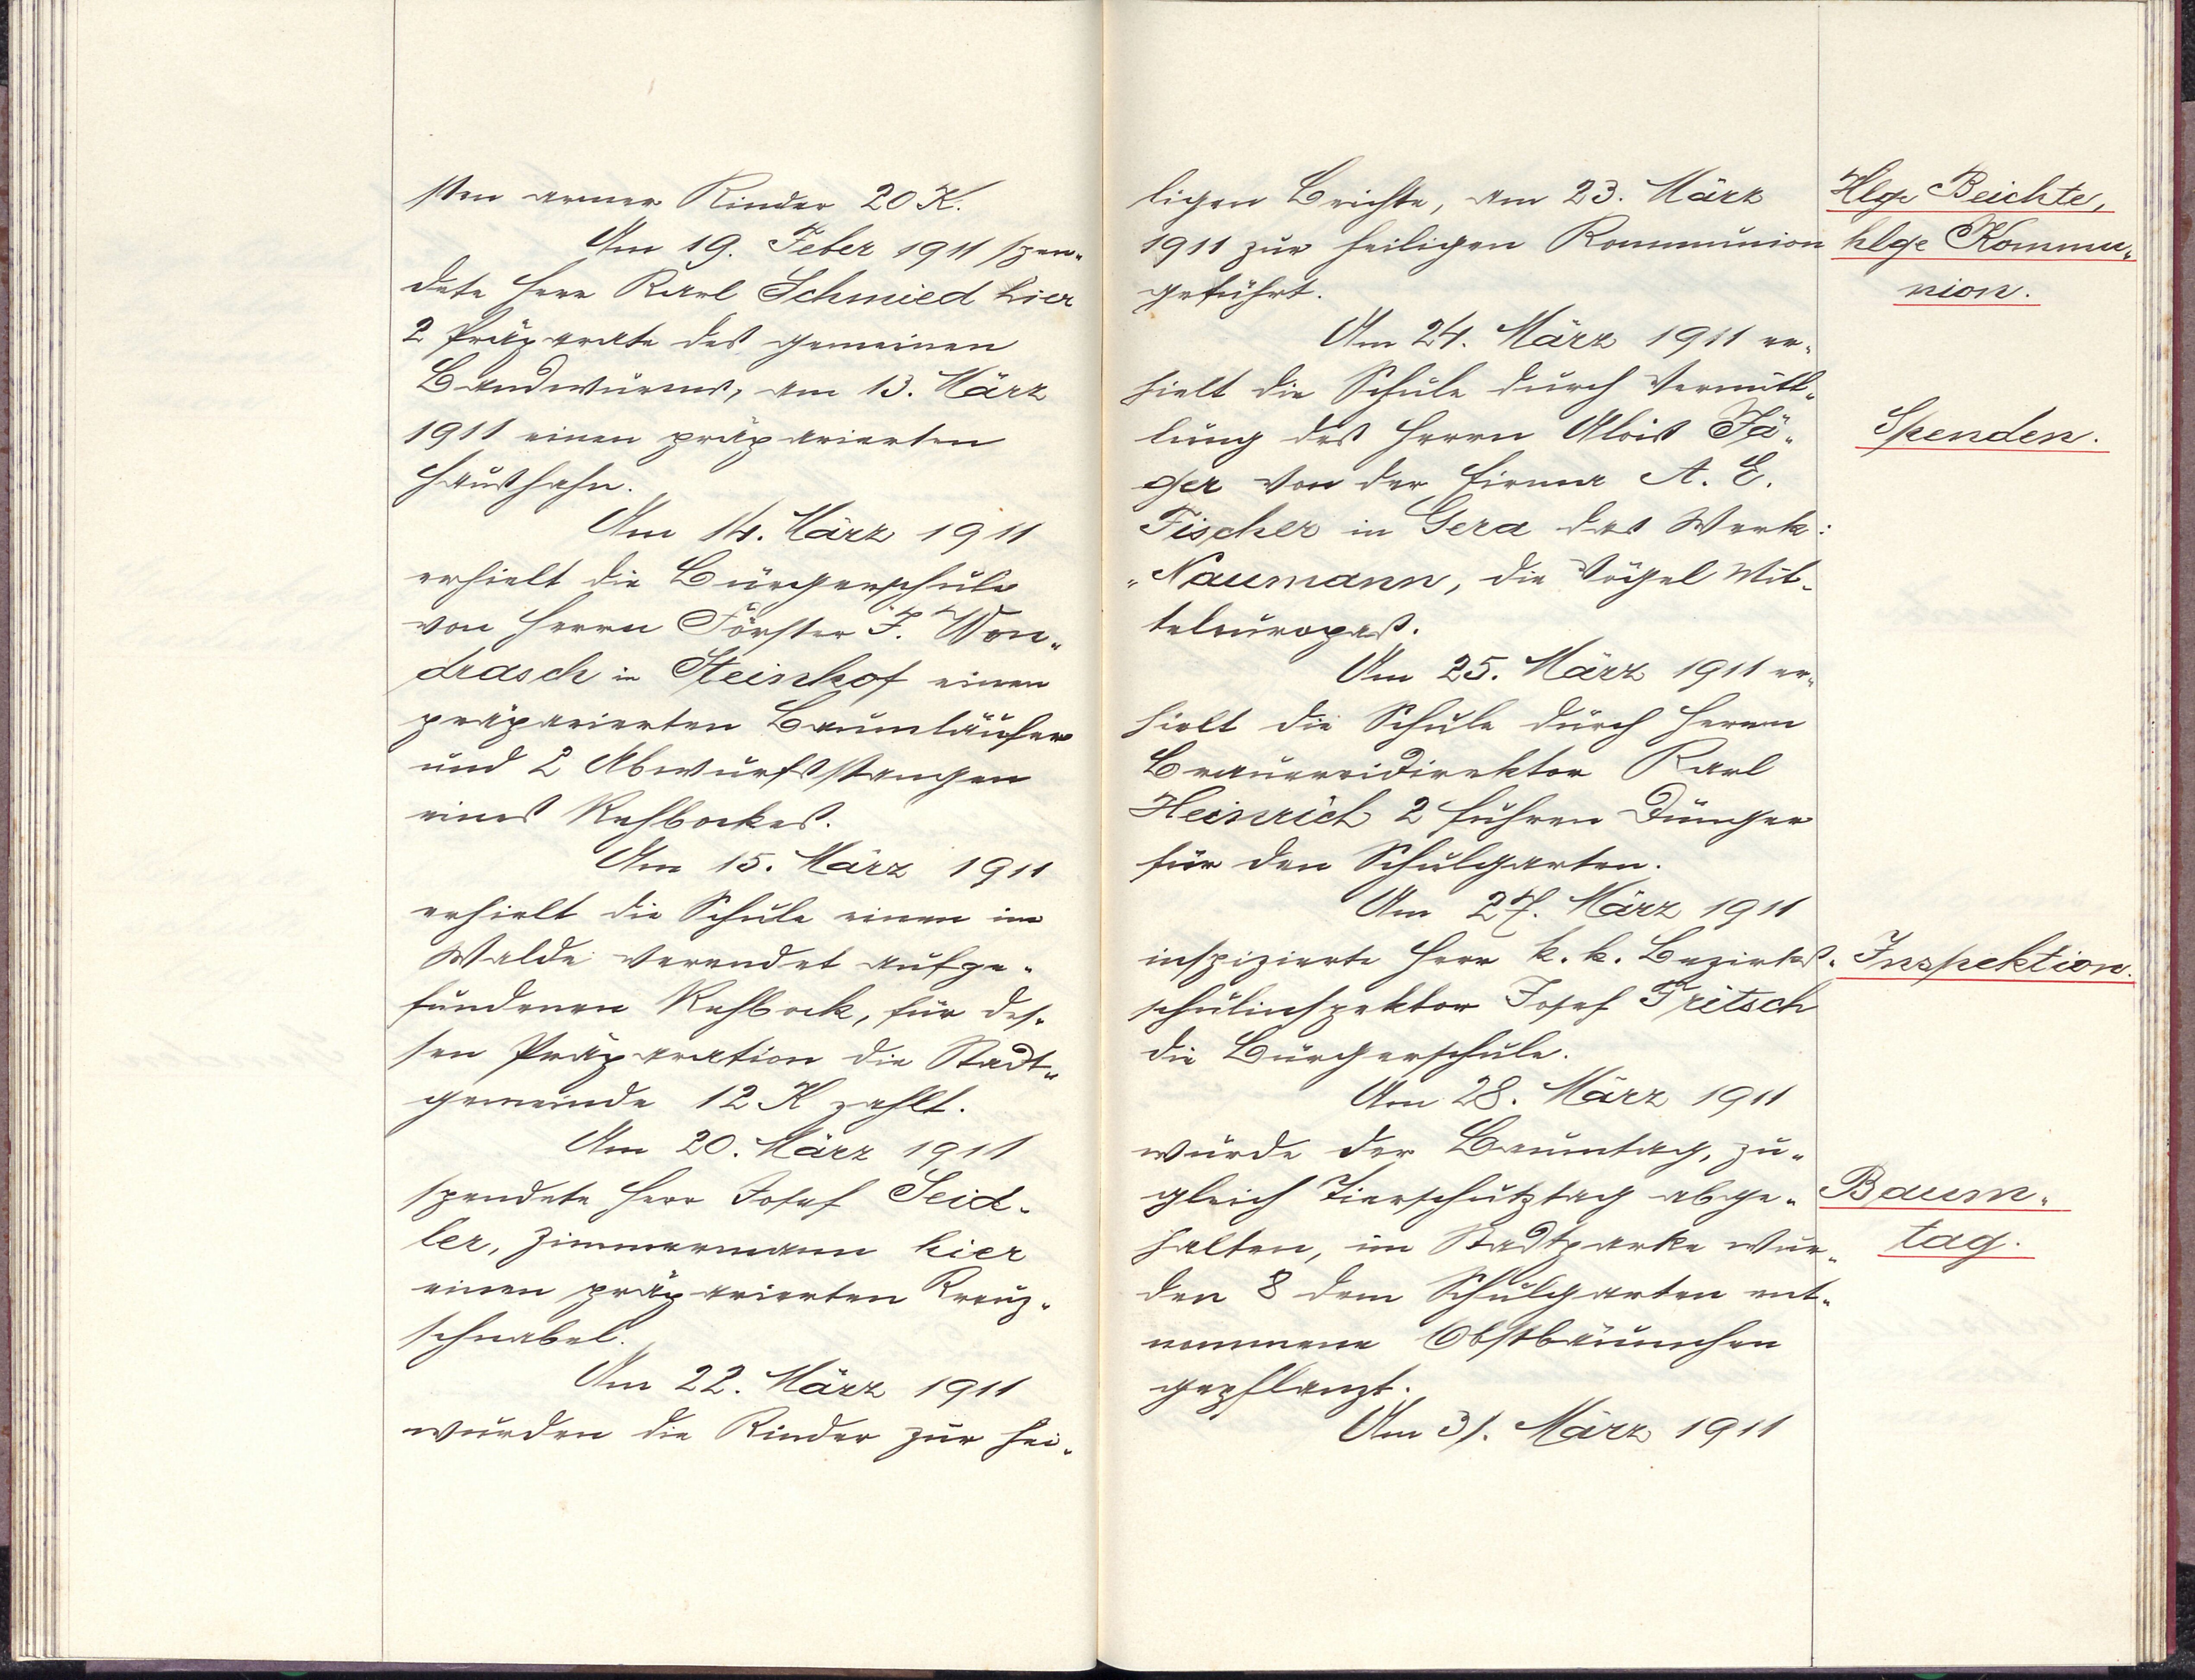 sten armer Kinder 20 K.
Am 19. Feber 1911 spen-
dete Herr Karl Schmied hier
2 Präparate des gemeinen
Bandwurms, am 13. März
1911 einen präparierten
Haushahn.
Am 14. März 1911
erhielt die Bürgerschule
von Herrn Förster F. Won-
drasch in Steinhof einen
präparierten Baumläufer
und 2 Abwurfsstangen
eines Rehbockes.
Am 15. März 1911
erhielt die Schule einen im
Walde verendet aufge-
fundenen Rehbock, für des-
sen Präparation die Stadt-
gemeinde 12 K zahlt.
Am 20. März 1911
spendete Herr Josef Seid-
ler, Zimmermann hier
einen präparierten Kreuz-
schnabel.
Am 22. März 1911
wurden die Kinder zur hei-
ligen Beichte, am 23. März
1911 zur heiligen Kommunion
geführt.
Am 24. März 1911 er-
hielt die Schule durch Vermitt-
lung des Herrn Alois Jä-
ger von der Firma A. E.
Fischer in Gera das Werk:
„Naumann, die Vögel Mit-
teleuropas.
Am 25. März 1911 er-
hielt die Schule durch Herrn
Brauereidirektor Karl
Heinrich 2 Fuhren Dünger
für den Schulgarten.
Am 27. März 1911
inspizierte Herr k. k. Bezirks-
schulinspektor Josef Fritsch
die Bürgerschule.
Am 28. März 1911
wurde der Baumtag, zu-
gleich Tierschutztag abge-
halten, im Stadtparke wur-
den 8 dem Schulgarten ent-
nommene Obstbäumchen
gepflanzt.
Am 31. März 1911
Hlge Beichte,
hlge Kommu-
nion.
Spenden.
Inspektion.
Baum-
tag.